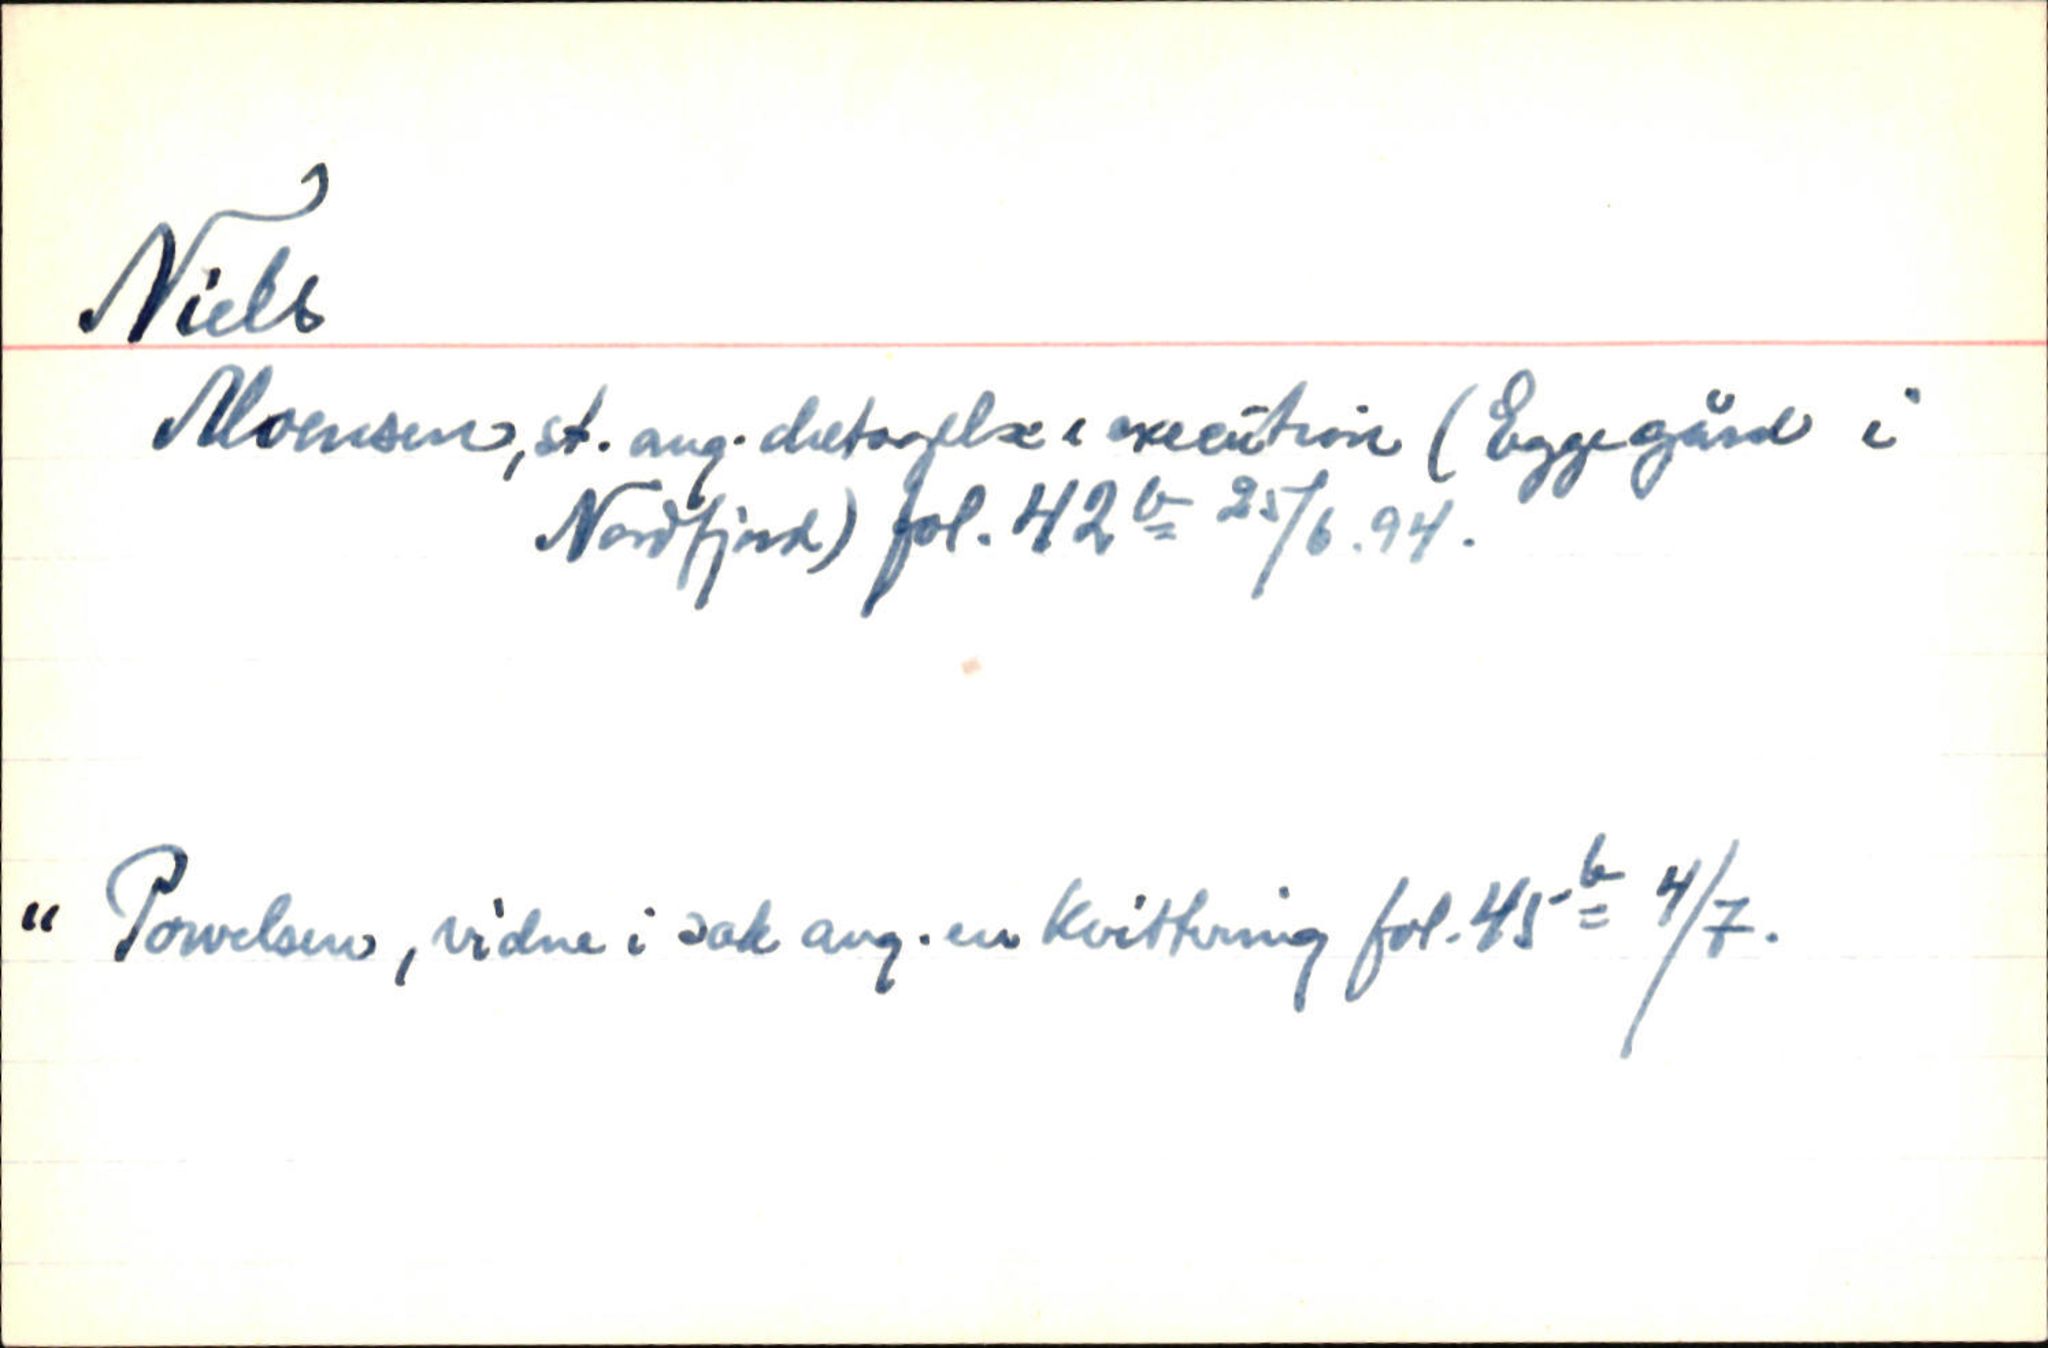 Niels
Moensen, st. ang. deltagelse i execution (Eggegård i
Nordfjord) fol. 42 b 25/6.94.
" Powelsen, vidne i sak ang. en kvittering fol. 45 b 4/7.